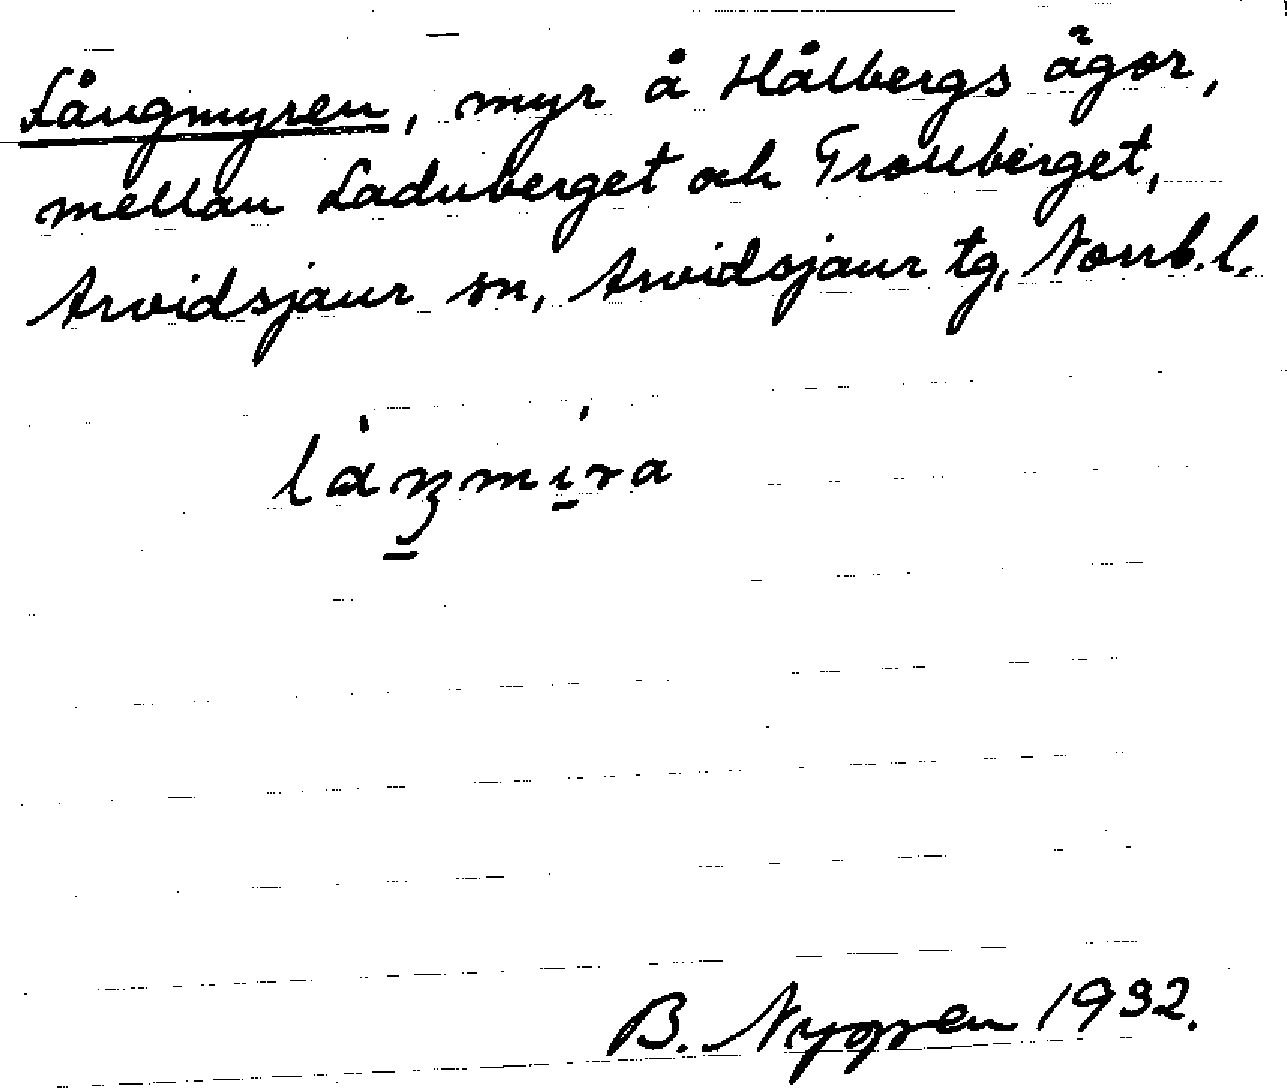 Långmyren, myr å Hålbergs ägor,
mellan Laduberget och Trollberget,
Arvidsjaur sn, Arvidsjaur tg, Norrb.l.
B. Nygren 1932.